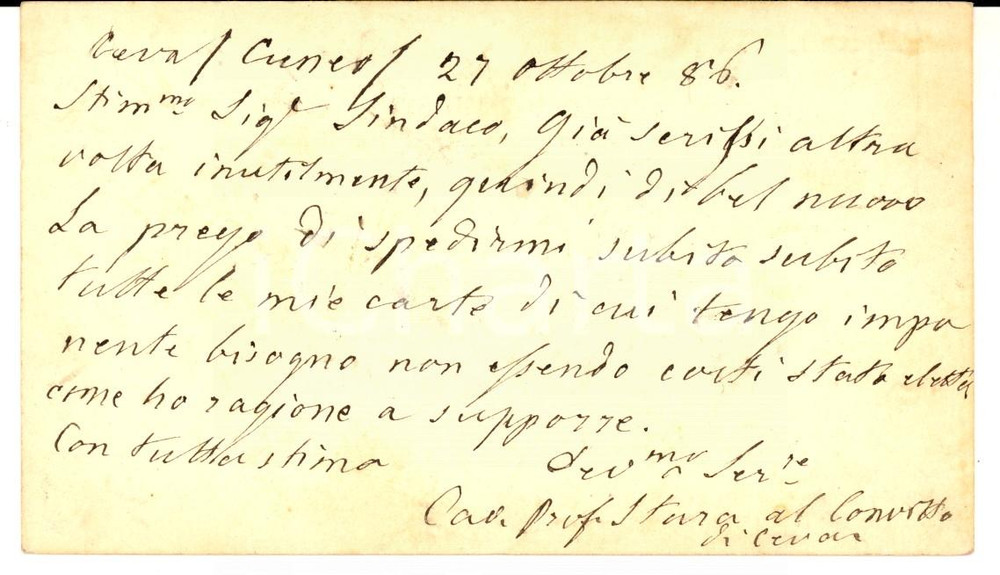 Ceva / Cuneo / 27 ottobre 86.
Stimmo Sigr Sindaco, Già scrissi altra
volta inutilmente, quindi di bel nuovo
La prego di spedirmi subito subito
tutte le mie carte di cui tengo impo
nente bisogno non essendo costì stato eletto
come ho ragione a supporre.
Con tutta stima
Devmo Serre
Cav. Prof. Stura al Convitto
di Ceva